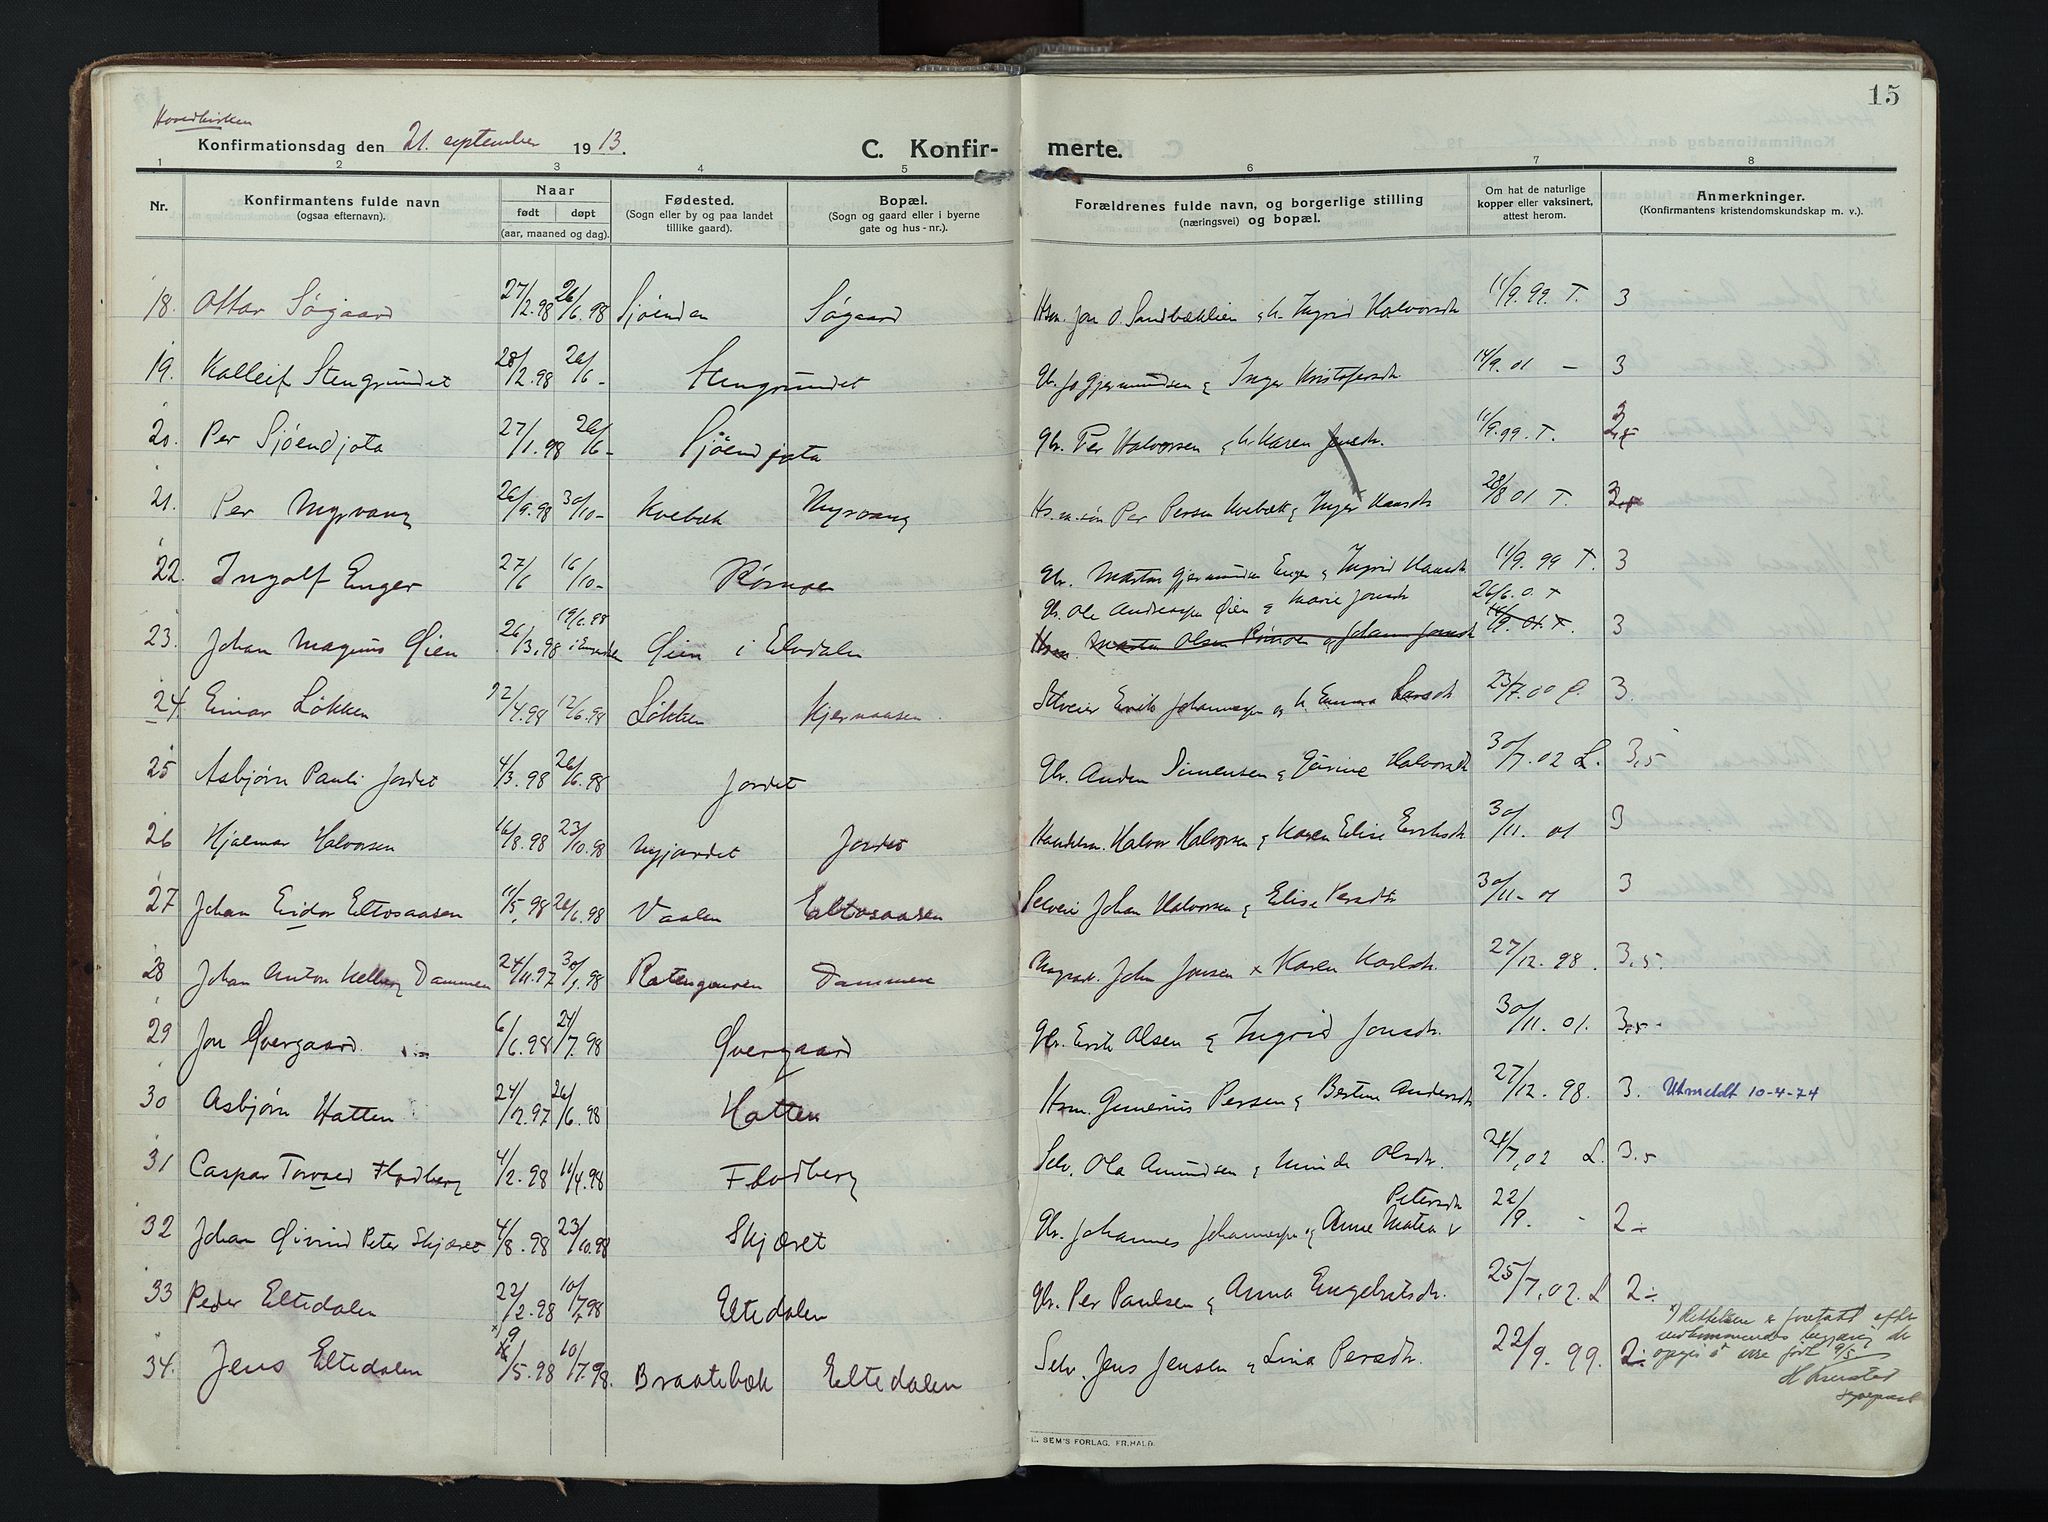 15
Hovedkirken
Konfirmationsdag den 21. september 1913. C. Konfir- merte.
1 2 3 4 5 6 7 8
Nr. Konfirmantens fulde navn (ogsaa efternavn). Naar født døpt (aar, maaned og dag). Fødested. (Sogn eller by og paa landet tillike gaard). Bopæl. (Sogn og gaard eller i byerne gate og hus-nr.). Forældrenes fulde navn, og borgerlige stilling (næringsvei) og bopæl. Om hat de naturlige kopper eller vaksinert, attest herom. Anmerkninger. (Konfirmantens kristendomskundskap m. v.).
18. Ottar Søgaard 27/2.98 26/6.98 Sjøenden Søgaard Hsm. Jon O. Sandbæklien & h. Ingrid Halvorsdt 11/9.99. T. 3
19. Kolleif Stengrundet 28/2.98 26/6- Stengrundet Gbr. Jo Gjermundsen & Inger Kristofersdt 14/9.01 - 3
20. Per Sjøendjota 27/1.98 26/6- Sjøendjota Gbr. Per Halvorsen & h. Karen Jonsdt. 11/9.99. T.
21. Per Myrvang 26/9.98 30/10- Kvebæk Myrvang Hs.m.søn Per Persen Kvebæk & Inger Hansdt 28/8 01 T.
22. Ingolf Enger 27/6 16/10- Rømoen Gbr. Martin Gjermundsen Enger & Ingrid Hansdt 11/9.99 T. 3
Gbr. Ole Andreasen Øien & Marie Jonsdt 26/6.0. T
23. Johan Magnus Øien 26/3.98 19/6.98 Øien i Elvdalen Hsm. Martin Olsen Rømoen & Johan Jonsdt 14/9.01.T. 3
24. Einar Løkken 22/4.98 12/6.98 Løkken Kjernaasen Selveier Erik Johannesen og h. Emma Larsdt 23/7.00 3.
25 Asbjørn Pauli Jordet 4/3.98 26/6.98 Jordet Gbr. Anders Simensen & Gurine Halvorsdt 30/7.02 L. 3,5
26 Hjalmar Halvorsen 16/8.98 23/10.98 Nyjordet Jordet Handelsm. Halvor Halvorsen & Karen Elise Eriksdt 30/11. 01 3
27 Johan Eidor Eltosaasen 11/5.98 26/6.98 Vaalen Eltosaasen Selvei Johan Halvorsen & Elise Persdt 30/11-01 3
28 Johan Anton Kelberg Dammen 24/11.97 30/1.98 Dammen John Jonsen & Karen Karlsdt. 27/12.98. 3,5.
29 Jon Øvergaard 6/6.98 24/7.98 Øvergaard Gbr. Erik Olsen & Ingrid Jonsdt. 30/11.01. 3.5-
30 Asbjørn Hatten 24/12.97 26/6.98 Hatten Hsm. Gunerius Persen & Bertine Andersdt 27/12.98. 3. Utmeldt 10-4-74
31 Caspar Torvaed Flodberg 4/2.98 11/4.98 Flodberg Selv. Ola Amundsen & Minda Olsdt. 24/7.02 L. 3.5
32 Johan Øivind Peter Skjæret 4/8.98 23/10.98 Skjæret Gbr. Johannes Johannesen & Anne Matea Petersdt 22/9. - 2-
33 Peder Eltedalen 22/2.98 10/7.98 Eltedalen Gbr. Per Paulsen & Anna Engebretsdt. 25/7.02. L 2-
34. Jens Eltedalen x) 9/5.98 10/7.98. Braatebæk Eltedalen Selv. Jens Jensen & Lina Persdt. 22/9.99. 2-
x) Rettelsen er foretatt efter
vedkommendes begjæring
født 9/5
sogneprest
E. SEM'S FORLAG, FR.HALD.